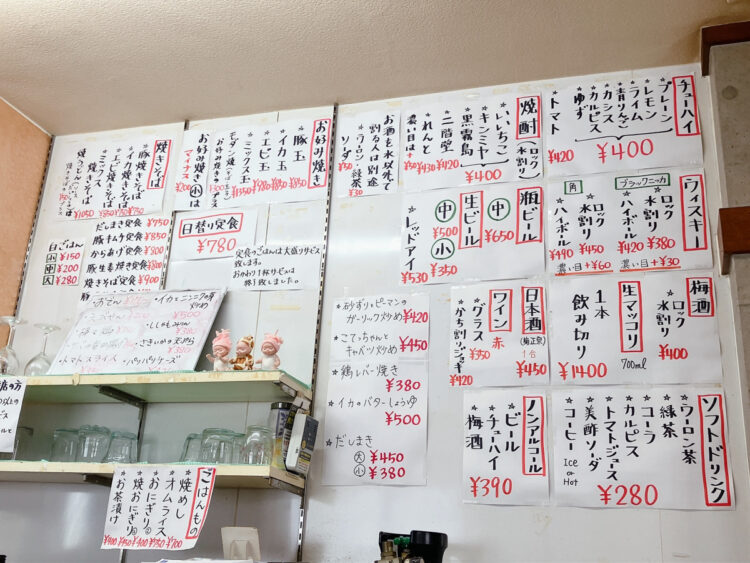 チューハイ
★プレーン
★レモン
★ライム
★青りんご
★カシス
★カルピス
★ゆず
¥400
★トマト
¥420
焼酎
(ロック・水割り)
★いいちこ
★キンミヤ
★黒霧島
¥400
★二階堂
¥420
★れんと
¥430
濃い目は
+¥50
お酒を水以外で
割る人は別途
★ウーロン・緑茶
¥30
★ソーダ
¥50
お好み焼き
★豚玉
¥850
★イカ玉
¥850
★エビ玉
★ミックス玉
お好み焼き小は
マイナス
¥200
焼きそば
★豚焼きそば
★イカ焼きそば
★エビ焼きそば
★ミックス焼きそば
ウィスキー
ブラックニッカ
★ロック
★水割り
¥380
★ハイボール
¥420
濃い目+¥30
角
★ロック
★水割り
¥450
★ハイボール
¥490
濃い目+¥60
瓶ビール
中
¥650
生ビール
中
¥500
小
¥350
★レッドアイ
¥530
日替り定食
¥780
定食のごはんは大盛りサービス
致します。
おかわり1杯サービスは
終了致しました。
だしまき定食 ¥750
豚キムチ定食 ¥850
からあげ定食 ¥900
豚生姜焼き定食 ¥800
焼きそば定食 ¥900
白ごはん
小 ¥150
中 ¥200
大 ¥280
梅酒
★ロック
★水割り
¥400
生マッコリ
700ml
1本
飲み切り
¥1400
日本酒
(菊正宗)
1合
¥450
ワイン
赤
★グラス
¥350
★かち割りジョッキ
¥420
★砂ずりとピーマンの
ガーリック炒め ¥420
★こてっちゃんと
キャベツ炒め ¥450
★鶏レバー焼き
¥380
★イカのバターしょうゆ
¥500
★だしまき
大 ¥450
小 ¥380
★トマトスライス
ソフトドリンク
★ウーロン茶
★緑茶
★コーラ
★カルピス
★トマトジュース
★美酢ソーダ
★コーヒー
Ice
or
Hot
¥280
ノンアルコール
★ビール
★チューハイ
★梅酒
¥390
ごはんもの
★焼めし
¥700
★オムライス
★おにぎり
★焼おにぎり
★お茶漬け